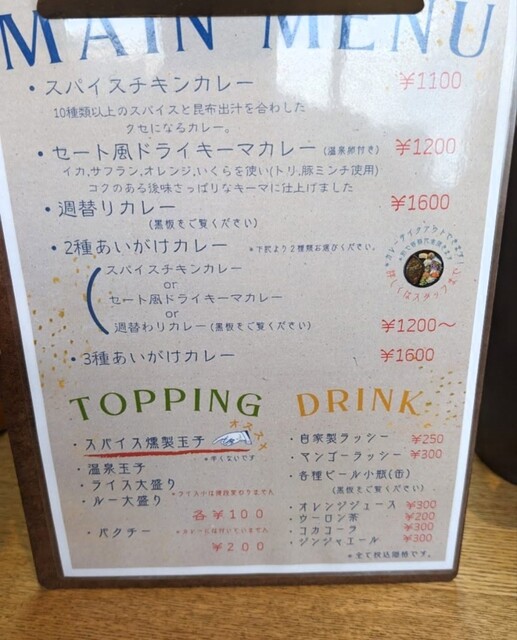 MAIN MENU
・スパイスチキンカレー ¥1100
10種類以上のスパイスと昆布出汁を合わした
クセになるカレー。
・セート風ドライキーマカレー(温泉卵付き) ¥1200
イカ,サフラン,オレンジ,いくらを使い(トリ,豚ミンチ使用)
コクのある後味さっぱりなキーマに仕上げました
・週替りカレー ¥1600
(黒板をご覧ください)
・2種あいがけカレー *下記より2種類お選びください。
スパイスチキンカレー
or
セート風ドライキーマカレー
or
週替わりカレー(黒板をご覧ください) ¥1200〜
・3種あいがけカレー ¥1600
TOPPING
オススメ
・スパイス燻製玉子
*辛くないです
・温泉玉子
・ライス大盛り
・ルー大盛り
各¥100
・パクチー
¥200
DRINK
・自家製ラッシー ¥250
・マンゴーラッシー ¥300
・各種ビール小瓶(缶)
(黒板をご覧ください)
・オレンジジュース ¥300
・ウーロン茶 ¥200
・コカコーラ ¥300
・ジンジャエール ¥300
*全て税込価格です。